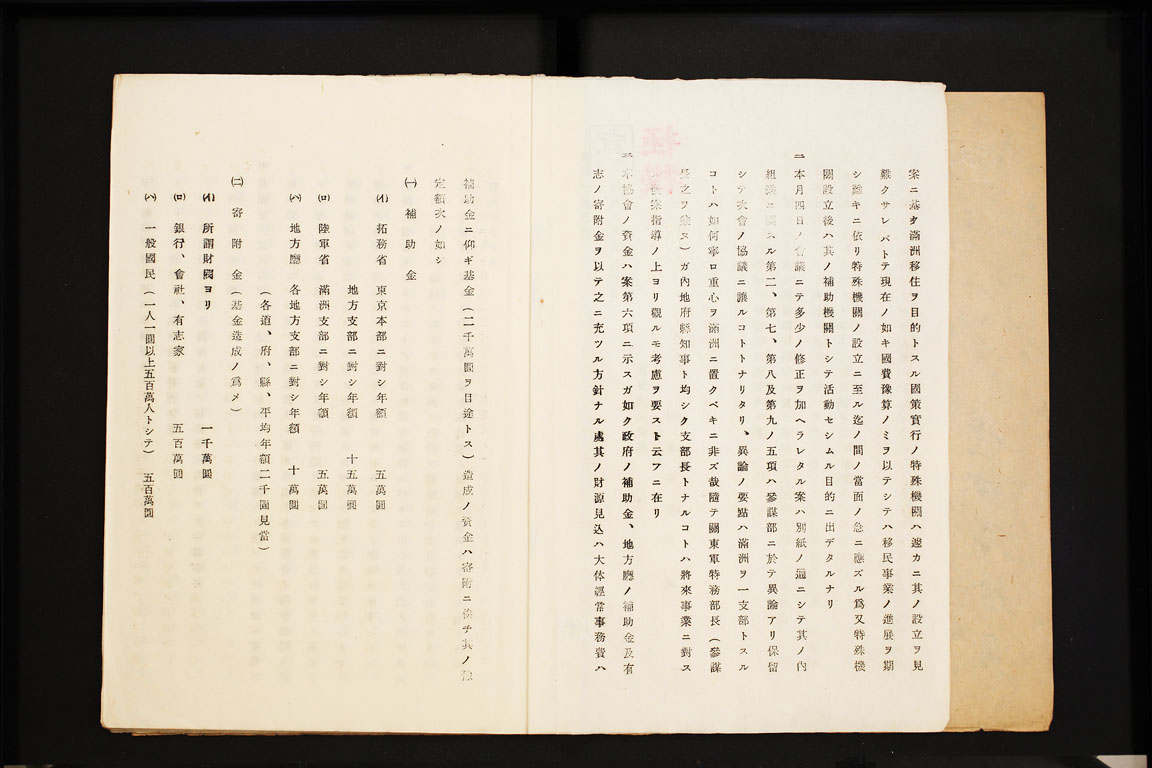 案ニ基ク滿洲移住ヲ目的トスル國策實行ノ特殊機關ハ遽カニ其ノ設立ヲ見
難タサレバトテ現在ノ如キ國費豫算ノミヲ以テシテハ移民事業ノ進展ヲ期
シ難キニ依リ特殊機關ノ設立ニ至ル迄ノ間ノ當面ノ急ニ應ズル爲又特殊機
關設立後ハ其ノ補助機關トシテ活動セシムル目的ニ出デタルナリ
二本月四日ノ會議ニテ多少ノ修正ヲ加ヘラレタル案ハ別紙ノ通ニシテ其ノ內
組織ニ關スル第二、第七、第八及第九ノ五項ハ參謀部ニ於テ異論アリ保留
シテ次會ノ協議ニ讓ルコトトナリタリ、異論ノ要點ハ滿洲ヲ一支部トスル
コトハ如何寧ロ重心ヲ滿洲ニ置クベキニ非ズ哉隨テ關東軍特務部長（參謀
長之ヲ兼ヌ）ガ內地府縣知事ト均シク支部長トナルコトハ將來事業ニ對ス
案指導ノ上ヨリ觀ルモ考慮ヲ要スト云フニ在リ
本協會ノ資金ハ案第六項ニ示スガ如ク政府ノ補助金、地方廳ノ補助金及有
志ノ寄附金ヲ以テ之ニ充ツル方針ナル處其ノ財源見込ハ大体經常事務費ハ
補助金ニ仰ギ基金（二千萬圓ヲ目途トス）造成ノ資金ハ寄附ニ俟チ其ノ豫
定額次ノ如シ
㈠ 補助金
(イ) 拓務省 東京本部ニ對シ年額 五萬圓
地方支部ニ對シ年額 十五萬圓
(ロ) 陸軍省 滿洲支部ニ對シ年額 五萬圓
(ハ) 地方廳 各地方支部ニ對シ年額 十萬圓
（各道、府、縣、平均年額二千圓見當）
㈡ 寄附金（基金造成ノ爲メ）
(イ) 所謂財閥ヨリ 一千萬圓
(ロ) 銀行、會社、有志家 五百萬圓
(ハ) 一般國民（一人一圓以上五百萬人トシテ） 五百萬圓